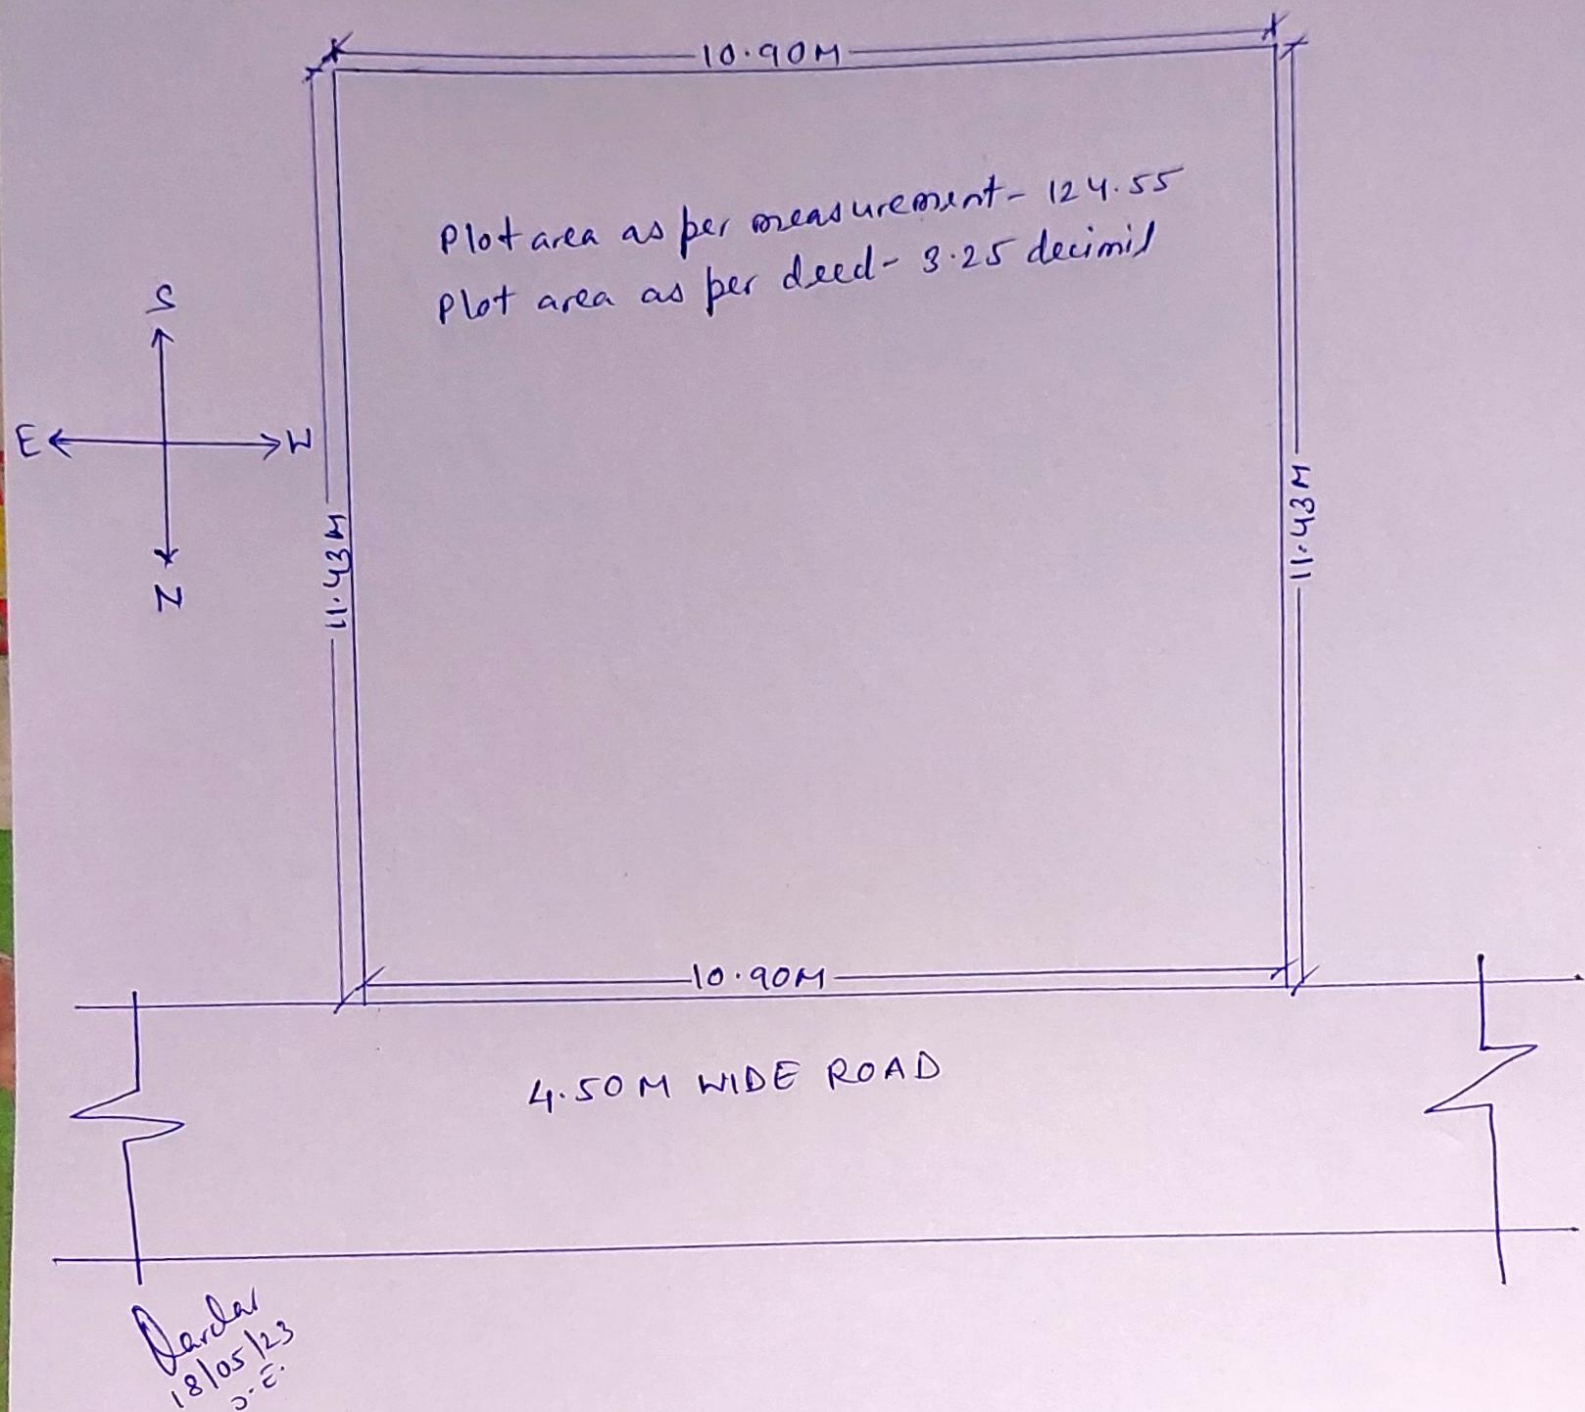 10.90M
Plot area as per measurement- 124.55
Plot area as per deed- 3.25 decimil
S
E
W
N
11.43M
11.43M
10.90M
4.50M WIDE ROAD
18/05/23
J.E.